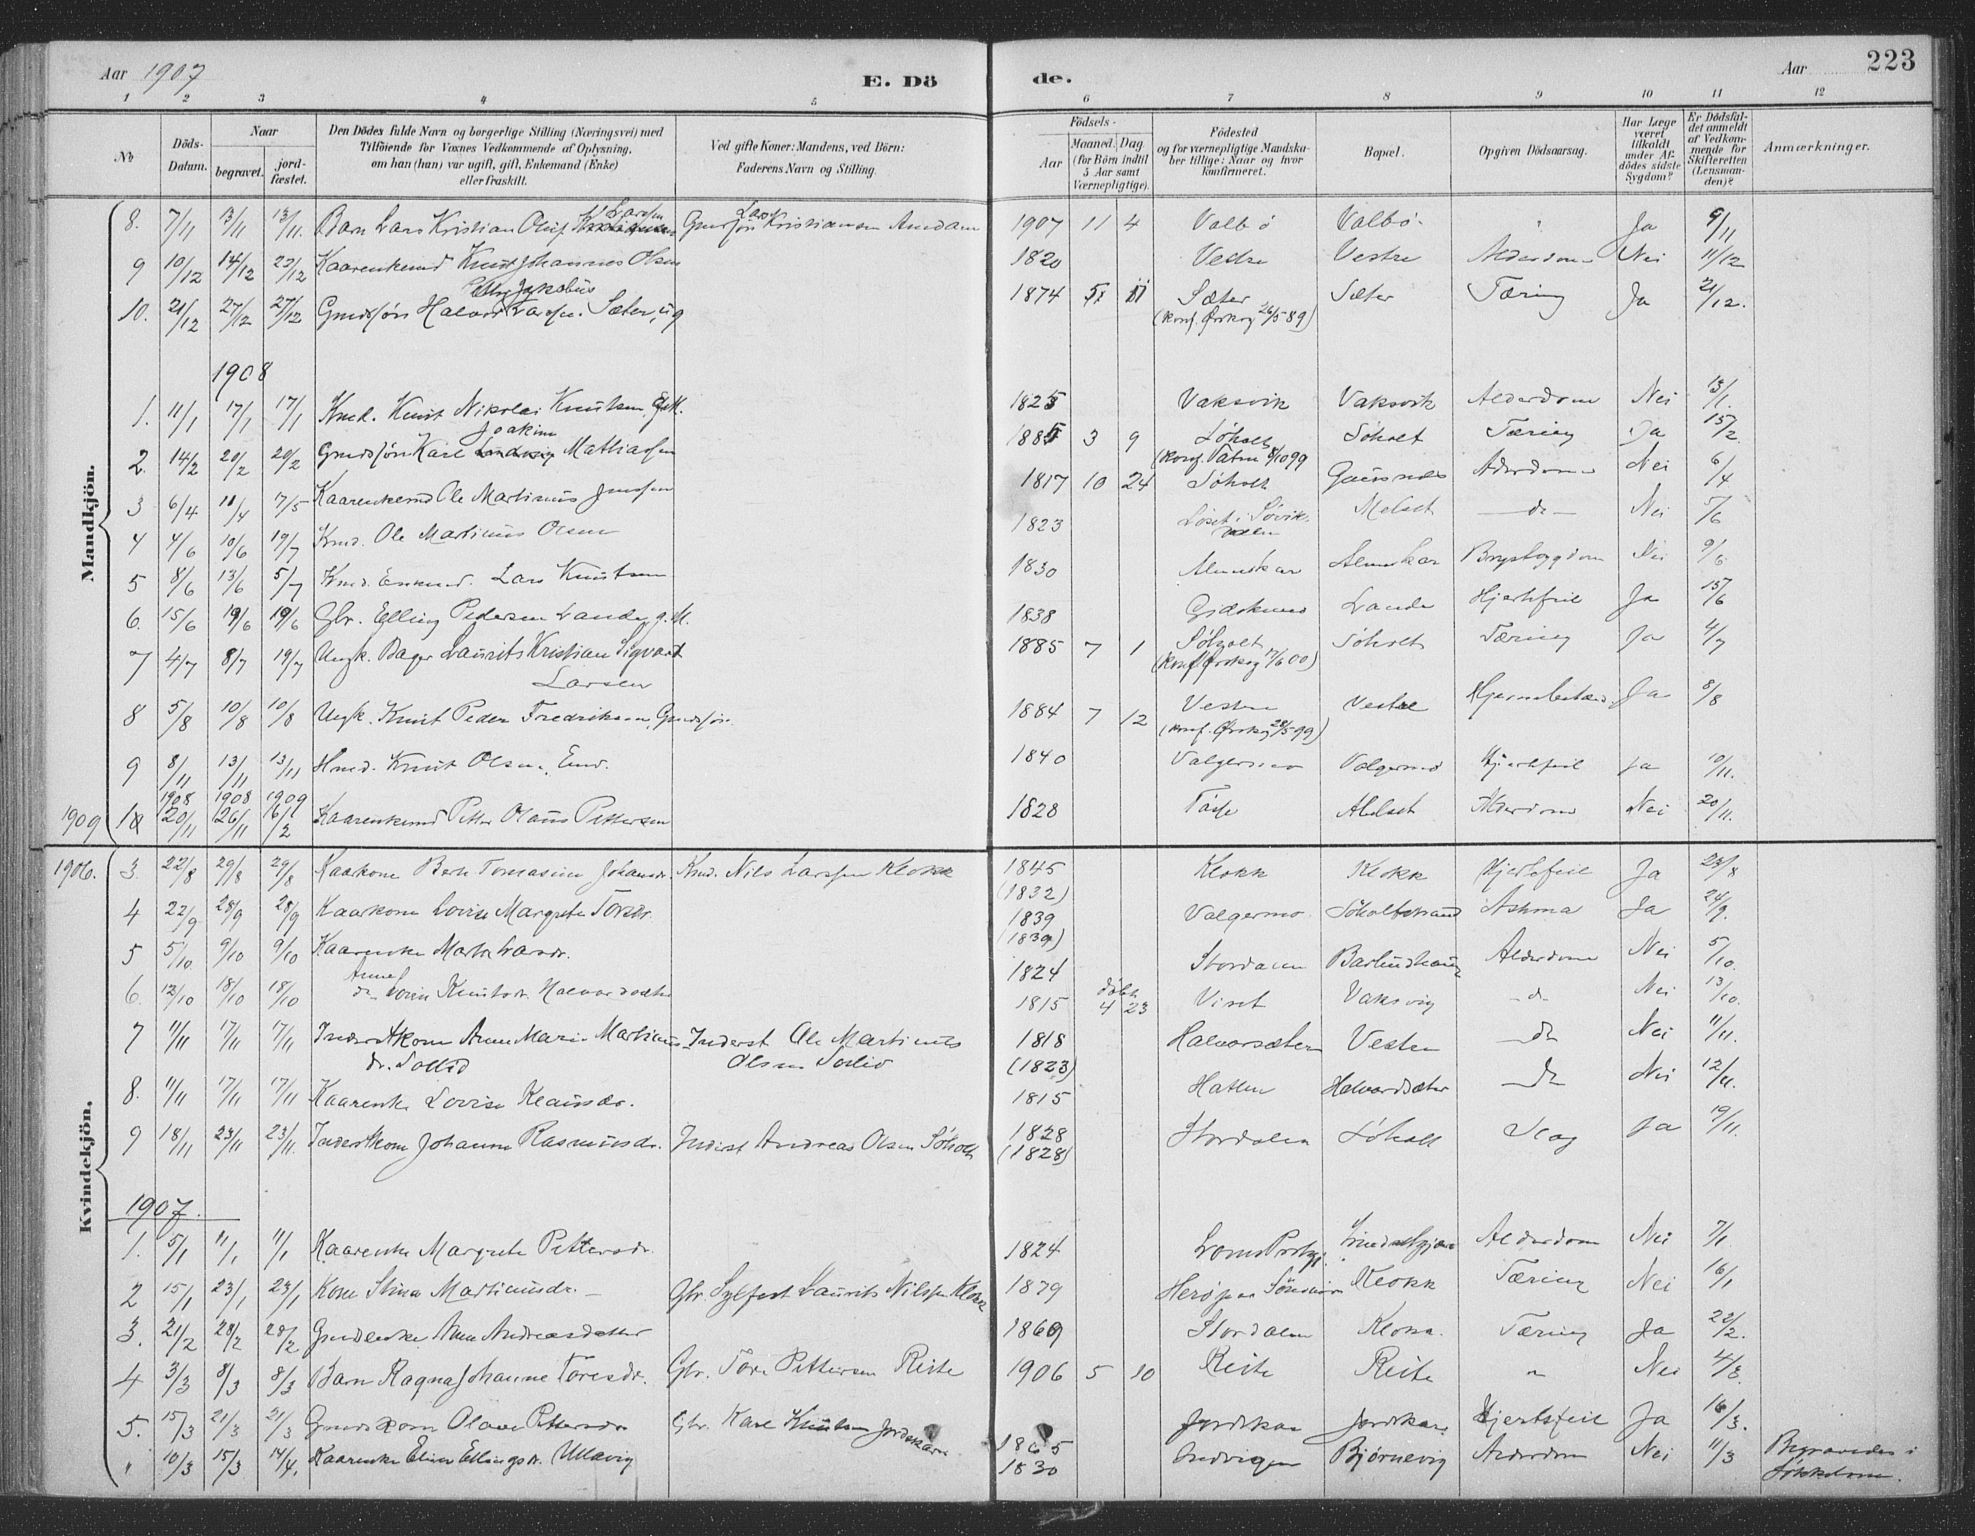 Aar 1907 E. Dö de. Aar 223
1 2 3 4 5 6 7 8 9 10 11 12
No
Döds-Datum.
Naar
begravet.
jord-fæstet.
Den Dödes fulde Navn og borgerlige Stilling (Næringsvei) med
Tilföiende for Voxnes Vedkommende af Oplysning,
om han (hun) var ugift, gift, Enkemand (Enke)
eller fraskilt.
Ved gifte Koner: Mandens, ved Börn:
Faderens Navn og Stilling.
Födsels-
Aar
Maaned. Dag
(for Börn indtil
5 Aar samt
Værnepligtige).
Födested
og for værnepligtige Mandska-
ber tillige: Naar og hvor
konfirmeret.
Bopæl.
Opgiven Dödsaarsag.
Har Læge
været
tilkaldt
under Af-
dödes sidste
Sygdom?
Er Dödsfal-
det anmeldt
af Vedkom-
mende for
Skifteretten
(Lensman-
den)?
Anmærkninger.
Mandkjön.
8. 7/11 13/11 13/11. Barn Lars Kristian Oluf Larsen Gmdsøn Lars Kristiansen Amdam 1907 11 4 Valbø Valbø. " Ja 9/11
9 10/12 14/12 27/12 Kaarenkemd Knut Johannes Olsen 1820 Vestre Vestre Alderdom Nei 11/12
10. 21/12 27/12 27/12 Gmdssøn Halvor Larsen. Sæter, ug 1874 Sæter Sæter Tæring Ja 21/12.
(konf. Ørskog 26/5 89)
1908
1. 11/1 17/1 17/1 Kmd. Knut Nikolai Knutsen, 1825 Vaksvik Vaksvik Alderdom Nei 13/1.
Joakim
2. 14/2 20/2 20/2 Gmdssøn Karl Mathiassen 1885 3 9 Søholt Søholt Tæring Ja 15/2.
(konf. Vatne 8/10 99
3 6/4 11/4 17/5 Kaarenkemd Ole Martinus Jensen 1817 10 24 Søholt Alderdom Nei 6/4
4 4/6 10/6 19/7 Kmd. Ole Martinus Olsen 1823 Løset i Søvik- Melset — do — Nei 5/6
dalen
5 8/6 13/6 5/7 Kmd. Enkemd. Lars Knutsen 1830 Almeskar Almeskar Brystsygdom Nei 9/6
6. 15/6 19/6 19/6 Gbr. Elling Pedersen Lande, g. M. 1838 Lande Hjertefeil Ja 15/6
7 4/7 8/7 19/7 Ungk. Bager Laurits Kristian Sigvart 1885 7 1 Søholt Søholt Tæring Ja 4/7
Larsen (konf Ørskog 17/6 00)
8 5/8 10/8 10/8 Ungk. Knut Peder Fredriksen, Gmdssøn 1884 7 12 Vestre Vestre Ja 8/8
(konf. Ørskog 28/5 99)
9 8/11 13/11 13/11 Hmd. Knut Olsen, Emd. 1840 Valgermo Valgermo Hjertefeil Ja 10/11.
1908 1908 1909
1909 10 20/11 26/11 16/2 Kaarenkemd Petter Olaus Pettersen 1828 Alderdom Nei 20/11.
Kvindekjön.
1906. 3. 22/8 29/8 29/8 Kaarkone Berte Tomasine Johansdr. Kmd. Nils Larssen Klokk 1845 Klokk Klokk Hjertefeil Ja 23/8
(1832)
4 22/9 28/9 28/9 Kaarkone Lovise Margrete Toresdr. 1839 Valgermo Søholtstrand Astma Ja 24/9.
(1839)
5 5/10 9/10 9/10 Kaarenke Marte Larsdr. 1824 Stordalen Alderdom Nei 5/10.
6. 12/10 18/10 18/10 do Anne Lovise Knutsdr. Halvardsæter 1815 døbt 4 23 Viset Vaksvig — do Nei 13/10.
7 11/11 17/11 17/11 Inderstkone Anne Marie Martinus Inderst Ole Martinus 1818 Halvorsæter Vestre — do Nei 11/11.
dr. Sollid Olsen Solid (1823)
8. 11/11 17/11 17/11 Kaarenke Lovise Klausdr. 1815 Hatlen Halvardsæter — do Nei 12/11.
9 18/11 23/11 23/11. Inderstkone Johanne Rasmusdr. Inderst Andreas Olsen Søholt 1828 Stordalen Søholt Slag Ja 19/11.
(1828)
1907.
1. 5/1 11/1 11/1 Kaarenke Margrete Pettersdr. 1824 Alderdom Nei 7/1
2 15/1 23/1 23/1 Kone Stina Martinusdr. — Gbr. Sylfest Laurits Nilssen Klokk 1879 Herø paa Søndmør Klokk Tæring Nei 16/1
3. 21/2 28/2 28/2 Gmdsenke Ane Andreasdatter 1869 Stordalen Klokk. Tæring Ja 22/2.
4 3/3 8/3 8/3 Barn Ragna Johanne Toresdr. Gbr. Tore Pettersen Reite 1906 5 10 Reite Reite " Nei 4/3.
5. 15/3 21/3 21/3 Gmdskone Olave Pettersdr Gbr. Karl Knutsen Jordskar. 1865 Jordskar Jordskar Hjertefeil Ja 16/3.
" 10/3 15/3 14/4. Kaarenke Eline Ellingsdr. Ullavig 1830 Indvigen Bjørnevig Alderdom Nei 11/3 Begravedes i